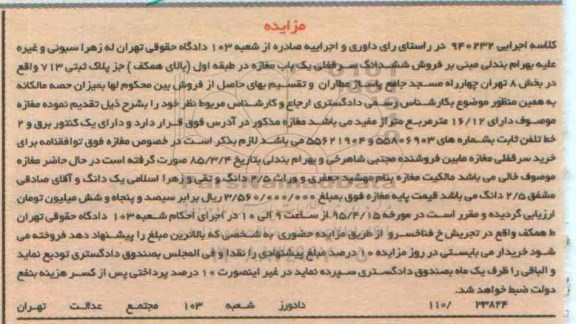 مزایده
کلاسه اجرایی ۹۴۰۲۳۲ در راستای رای داوری و اجراییه صادره از شعبه ۱۰۳ دادگاه حقوقی تهران له زهرا سبونی و غیره
علیه بهرام بندلی مبنی بر فروش ششدانگ سرقفلی یک باب مغازه در طبقه اول (بالای همکف ) جز پلاک ثبتی ۷۱۳ واقع
در بخش ۸ تهران چهارراه مسجد جامع پاساژ عطاران و تقسیم بهای حاصل از فروش بین محکوم لها بمیزان حصه مالکانه
به همین منظور موضوع بکارشناس رسمی دادگستری ارجاع و کارشناس مربوط نظر خود را بشرح ذیل تقدیم نموده مغازه
موصوف دارای ۱۶/۱۲ مترمربع متراژ مفید می باشد مغازه مذکور در آدرس فوق قرار دارد و دارای یک کنتور برق و ۲
خط تلفن ثابت بشماره های ۵۵۸۰۶۹۰۳ و ۵۵۶۲۱۹۰۴ می باشد لازم بذکر است در خصوص مغازه فوق توافقنامه برای
خرید سرقفلی مغازه مابین فروشنده مجتبی شاهرخی و بهرام بندلی بتاریخ ۸۵/۳/۴ صورت گرفته است در حال حاضر مغازه
موصوف خالی می باشد مالکیت مغازه بنام مهشید جعفری و وراث ۲/۵ دانگ و تقی و زهرا اسلامی یک دانگ و آقای صادقی
مشفق ۲/۵ دانگ می باشد قیمت پایه مغازه فوق بمبلغ ۳/۵۶۰/۰۰۰/۰۰۰ ریال برابر سیصد و پنجاه و شش میلیون تومان
ارزیابی گردیده و مقرر است در مورخه ۹۵/۴/۱۵ از ساعت ۹ الی ۱۰ در اجرای احکام شعبه ۱۰۳ دادگاه حقوقی تهران
ط همکف واقع در تجریش خ فناخسرو از طریق مزایده حضوری به شخصی که بالاترین مبلغ را پیشنهاد دهد فروخته می
شود خریدار می بایستی در روز مزایده ۱۰ درصد مبلغ پیشنهادی را نقدا و فی المجلس بصندوق دادگستری تودیع نماید
و الباقی را ظرف یک ماه بصندوق دادگستری سپرده نماید در غیر اینصورت ۱۰ درصد پرداختی پس از کسر هزینه بنفع
دولت ضبط خواهد شد.
۲۳۸۲۴ /۱۱۰ دادورز شعبه ۱۰۳ مجتمع عدالت تهران